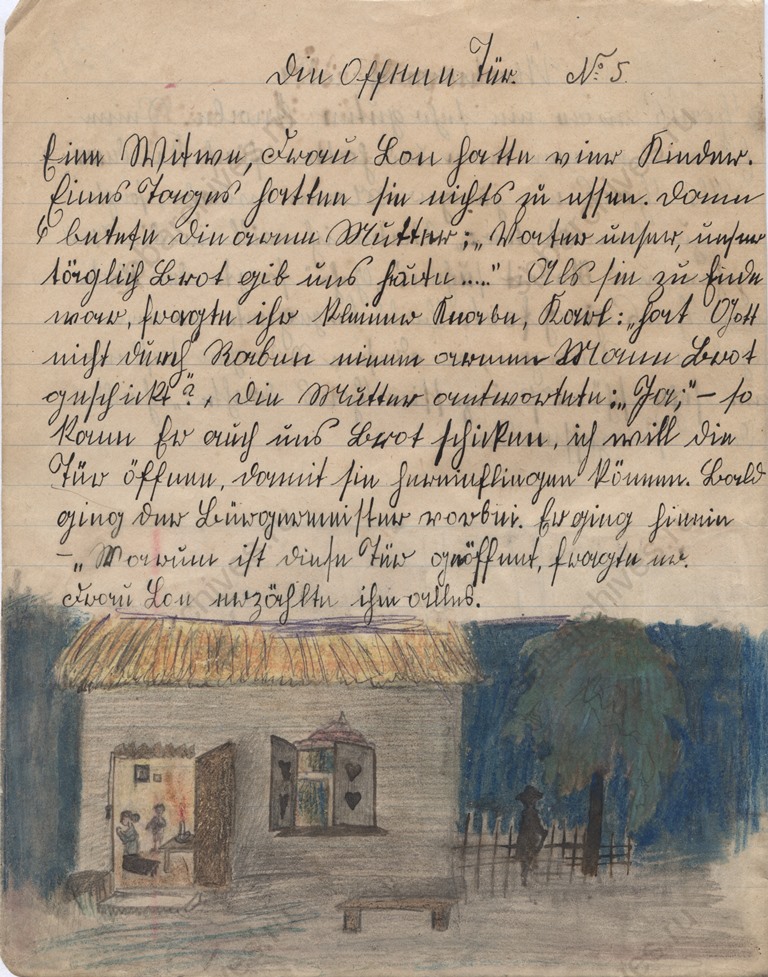 Die Offene Tür. No 5.
Eine Witwe, Frau Lou hatte vier Kinder.
Eines Tages hatten sie nichts zu essen. Dann
betete die arme Mutter: „Vater unser, unser
täglich Brot gib uns heute....“ Als sie zu Ende
war, fragte ihr kleiner Knabe, Karl: „hat Gott
nicht durch Raben einem armen Mann Brot
geschickt?, Die Mutter antwortete: „Ja;“ – so
kann Er auch uns Brot schicken, ich will die
Tür öffnen, damit sie hereinfliegen können. Bald
ging der Bürgermeister vorbei. Er ging hinein
– „Warum ist diese Tür geöffnet, fragte er.
Frau Lou erzählte ihm alles.